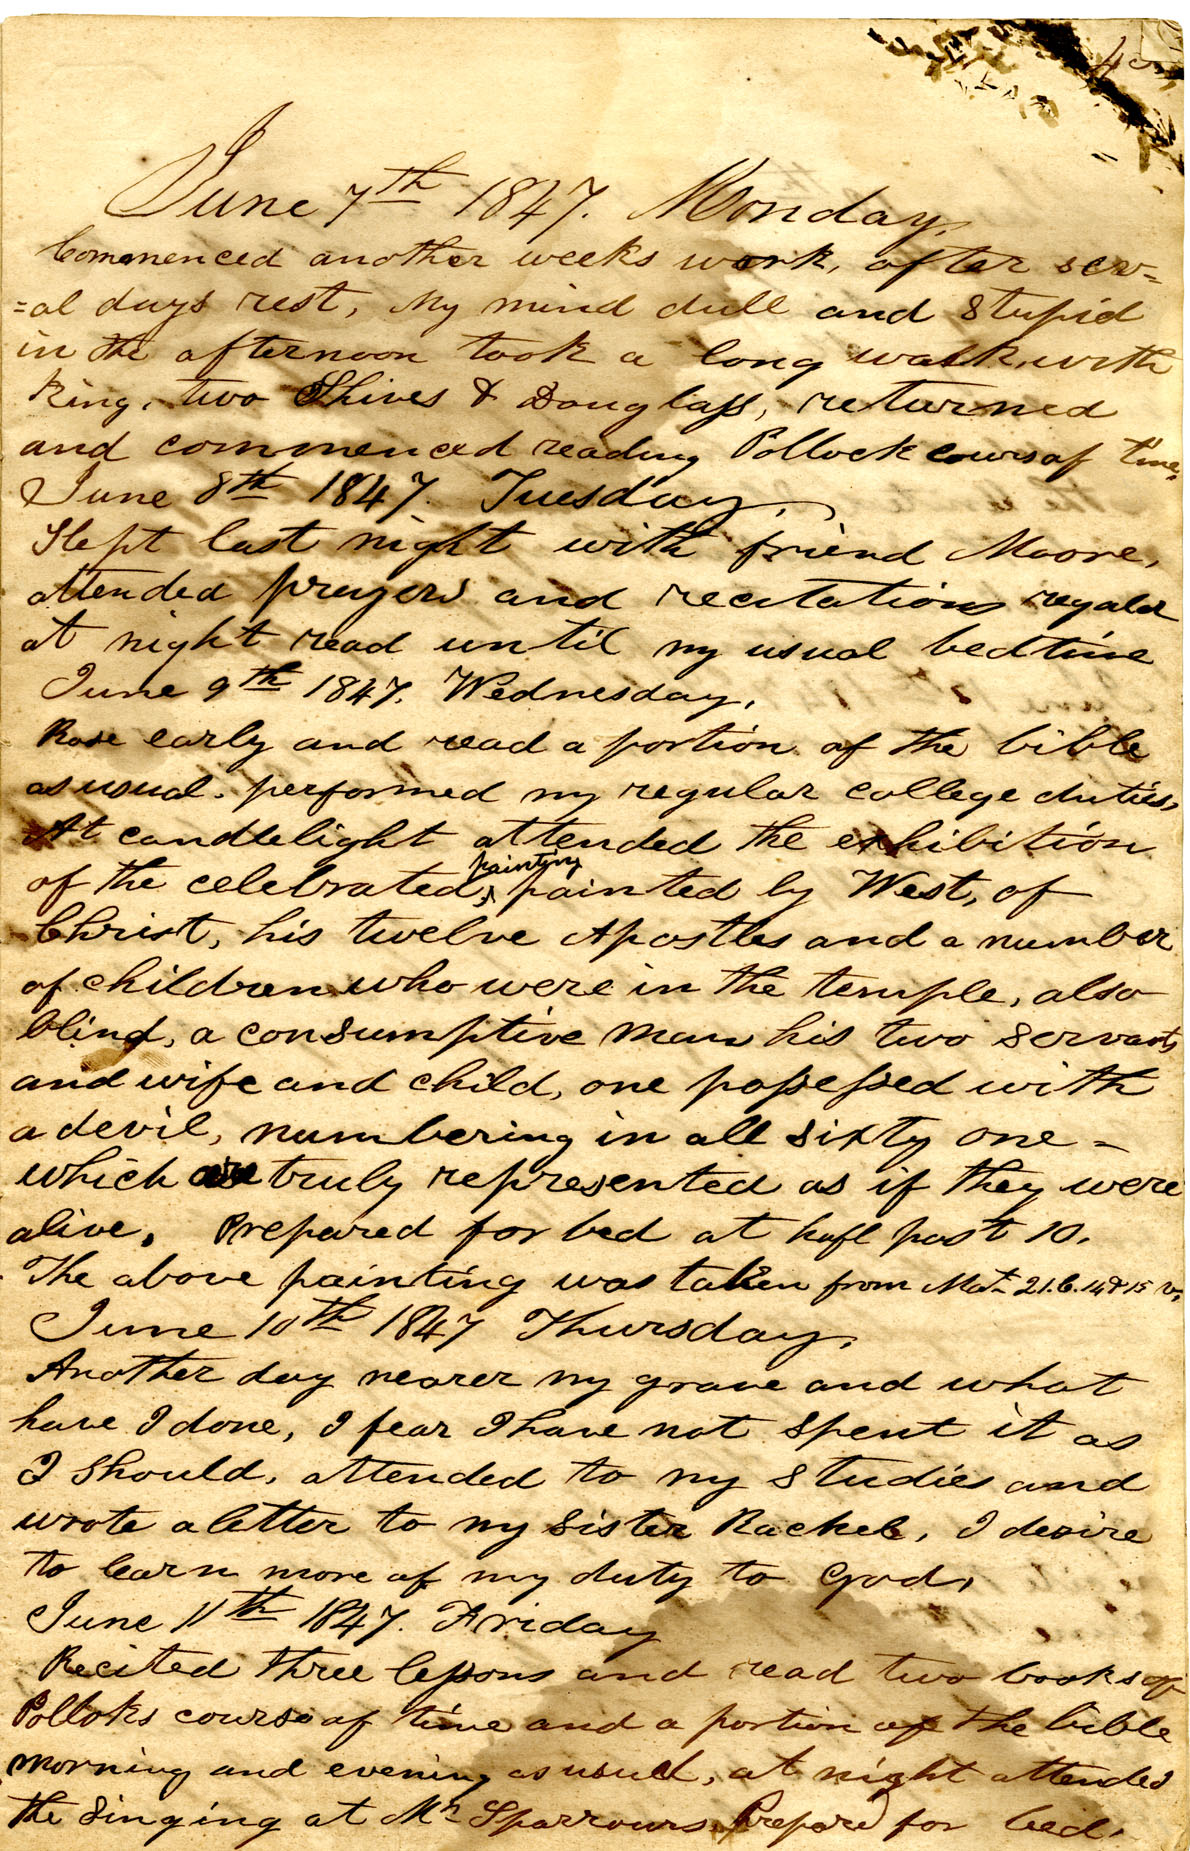 June 7th 1847. Monday.
Commenced another weeks work, after sev=
=al days rest, My mind dull and stupid
in the afternoon took a long walk, with
King, two Shives & Douglass, returned
and commenced reading Pollock cours of time,
June 8th 1847. Tuesday.
Slept last night with friend Moore,
attended prayers and recitations regular
at night read until my usual bedtime
June 9th 1847. Wednesday.
Rose early and read a portion of the bible
as usual. performed my regular college duties,
At candlelight attended the exhibition
of the celebrated, painting painted by West, of
Christ, his twelve Apostles and a number
of children who were in the temple, also
blind, a consumptive man his two servants
and wife and child, one possessed with
a devil, numbering in all sixty one -
which are truly represented as if they were
alive. Prepared for bed at hafl past 10.
The above painting was taken from Mat. 21.C. 14 & 15 v.
June 10th 1847 Thursday.
Another day nearer my grave and what
have I done, I fear I have not spent it as
I should, attended to my studies and
wrote a letter to my sister Rachel, I desire
to learn more of my duty to God,
June 11th 1847. Friday
Recited three lessons and read two books of
Polloks course of time and a portion of the bible
morning and evening as usual, at night attended
the singing at Mr Sparrows. Prepared for bed.